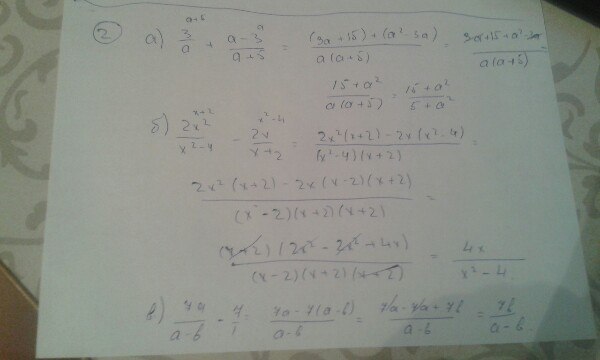 2) а) 3/a^(a+5) + (a-3)/(a+5)^a = ((3a+15)+(a²-3a))/(a(a+5)) = (3a+15+a²-3a)/(a(a+5))
(15+a²)/(a(a+5)) = (15+a²)/(5+a²)
б) 2x²/(x²-4)^(x+2) - 2x/(x+2)^(x²-4) = (2x²(x+2)-2x(x²-4))/((x²-4)(x+2)) =
(2x²(x+2)-2x(x-2)(x+2))/((x-2)(x+2)(x+2)) =
((x+2)(2x²-2x²+4x))/((x-2)(x+2)(x+2)) = 4x/(x²-4)
в) 7a/(a-b) - 7/1 = (7a-7(a-b))/(a-b) = (7a-7a+7b)/(a-b) = 7b/(a-b)